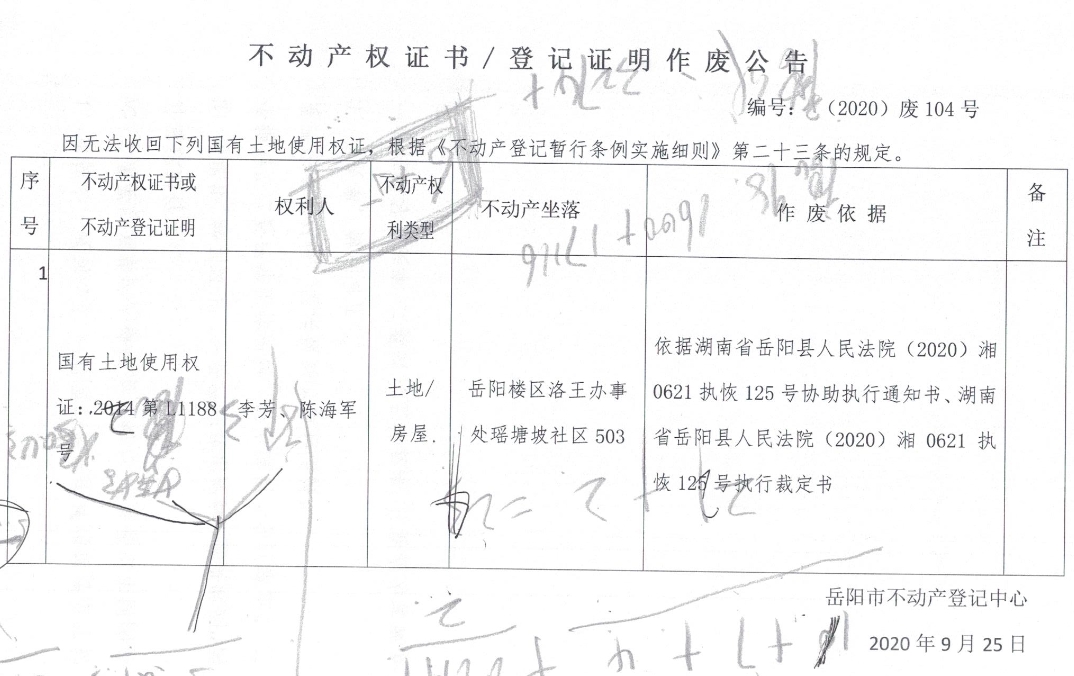 不动产权证书/登记证明作废公告
编号:（2020）废 104 号
因无法收回下列国有土地使用权证，根据《不动产登记暂行条例实施细则》第二十三条的规定。
序号
不动产权证书或
不动产登记证明
权利人
不动产权
利类型
不动产坐落
作废依据
备注
1
国有土地使用权
证：2014 第 L1188
号
李芳、陈海军
土地/
房屋.
岳阳楼区洛王办事
处瑶塘坡社区 503
依据湖南省岳阳县人民法院（2020）湘
0621 执恢 125 号协助执行通知书、湖南
省岳阳县人民法院（2020）湘 0621 执
恢 125 号执行裁定书
岳阳市不动产登记中心
2020 年 9 月 25 日